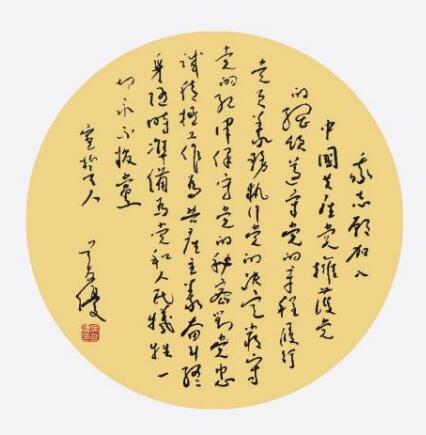 我志愿加入
中國共产党擁護党
的纲领遵守党的章程履行
党员义务执行党的决定严守
党的纪律保守党的秘密对党忠
诚积极工作为共产主义奋斗终
身随时準備为党和人民犧牲一
切永不叛黨
宣誓人